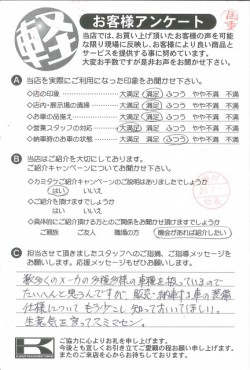 軽
お客様アンケート
当店では、お買い上げ頂いたお客様の声を可能
な限り現場に反映し、お客様により良い商品と
サービスを提供する事に努めています。
大変お手数ですが是非お声をお聞かせ下さい。
A 当店を実際にご利用になった印象をお聞かせ下さい。
◇店の印象 大満足 満足 ふつう やや不満 不満
◇店内・展示場の清掃 大満足 満足 ふつう やや不満 不満
◇お車の品揃え 大満足 満足 ふつう やや不満 不満
◇営業スタッフの対応 大満足 満足 ふつう やや不満 不満
◇納車時のお車の状態 大満足 満足 ふつう やや不満 不満
B 当店はご紹介を大切にしております。
ご紹介キャンペーンについてお聞かせ下さい。
◇カミタケご紹介キャンペーンのご説明はありましたでしょうか
はい いいえ
◇ご紹介を頂けますでしょうか
はい いいえ
◇具体的にご紹介頂ける方とのご関係をお聞かせ頂けますでしょうか
ご親族 ご友人 職場の方 機会があれば紹介したい
C 担当させて頂きましたスタッフへのご指摘、ご指導メッセージを
お願いします。応援メッセージもぜひお願いします。
数多くのメーカの多種多様の車種を扱っているので
たいへんと思うんですが 販売・納車する車の装備
仕様について もう少こし 知っておいてほしい。
生意気言ってスミマセン。
ご協力に心よりお礼を申し上げます。
今後とも宜しくお引き立てご愛顧の程お願い申し上げます。
またのご来店を心からお待ちしております。